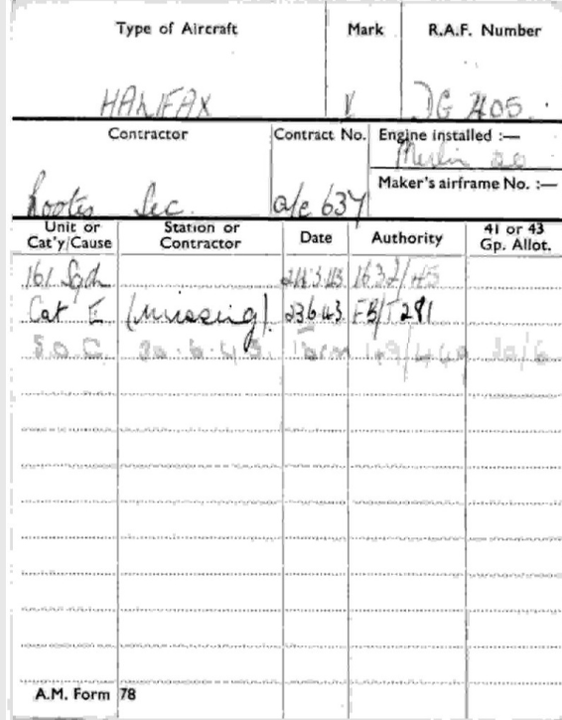 Type of Aircraft Mark R.A.F. Number
HALIFAX V DG 405
Contractor Contract No. Engine installed :—
Merlin 20
Maker's airframe No. :—
Rootes Sec. a/c 637
Unit or Cat'y/Cause Station or Contractor Date Authority 41 or 43 Gp. Allot.
161 Sqdn 1632/45
Cat E (missing). 23.6.43 FB/T 281
S.O.C. 30.6.43.
A.M. Form 78